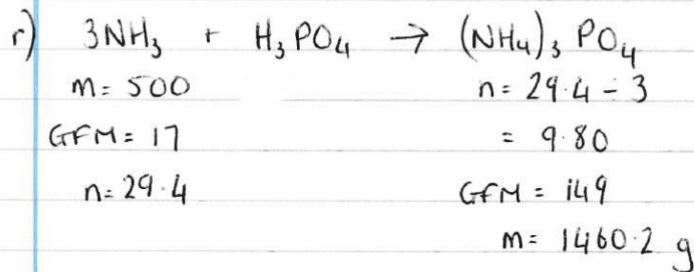 r) 3NH₃ + H₃PO₄ → (NH₄)₃ PO₄
m = 500
GFM = 17
n = 29.4
n = 29.4 ÷ 3
= 9.80
GFM = 149
m = 1460.2 g